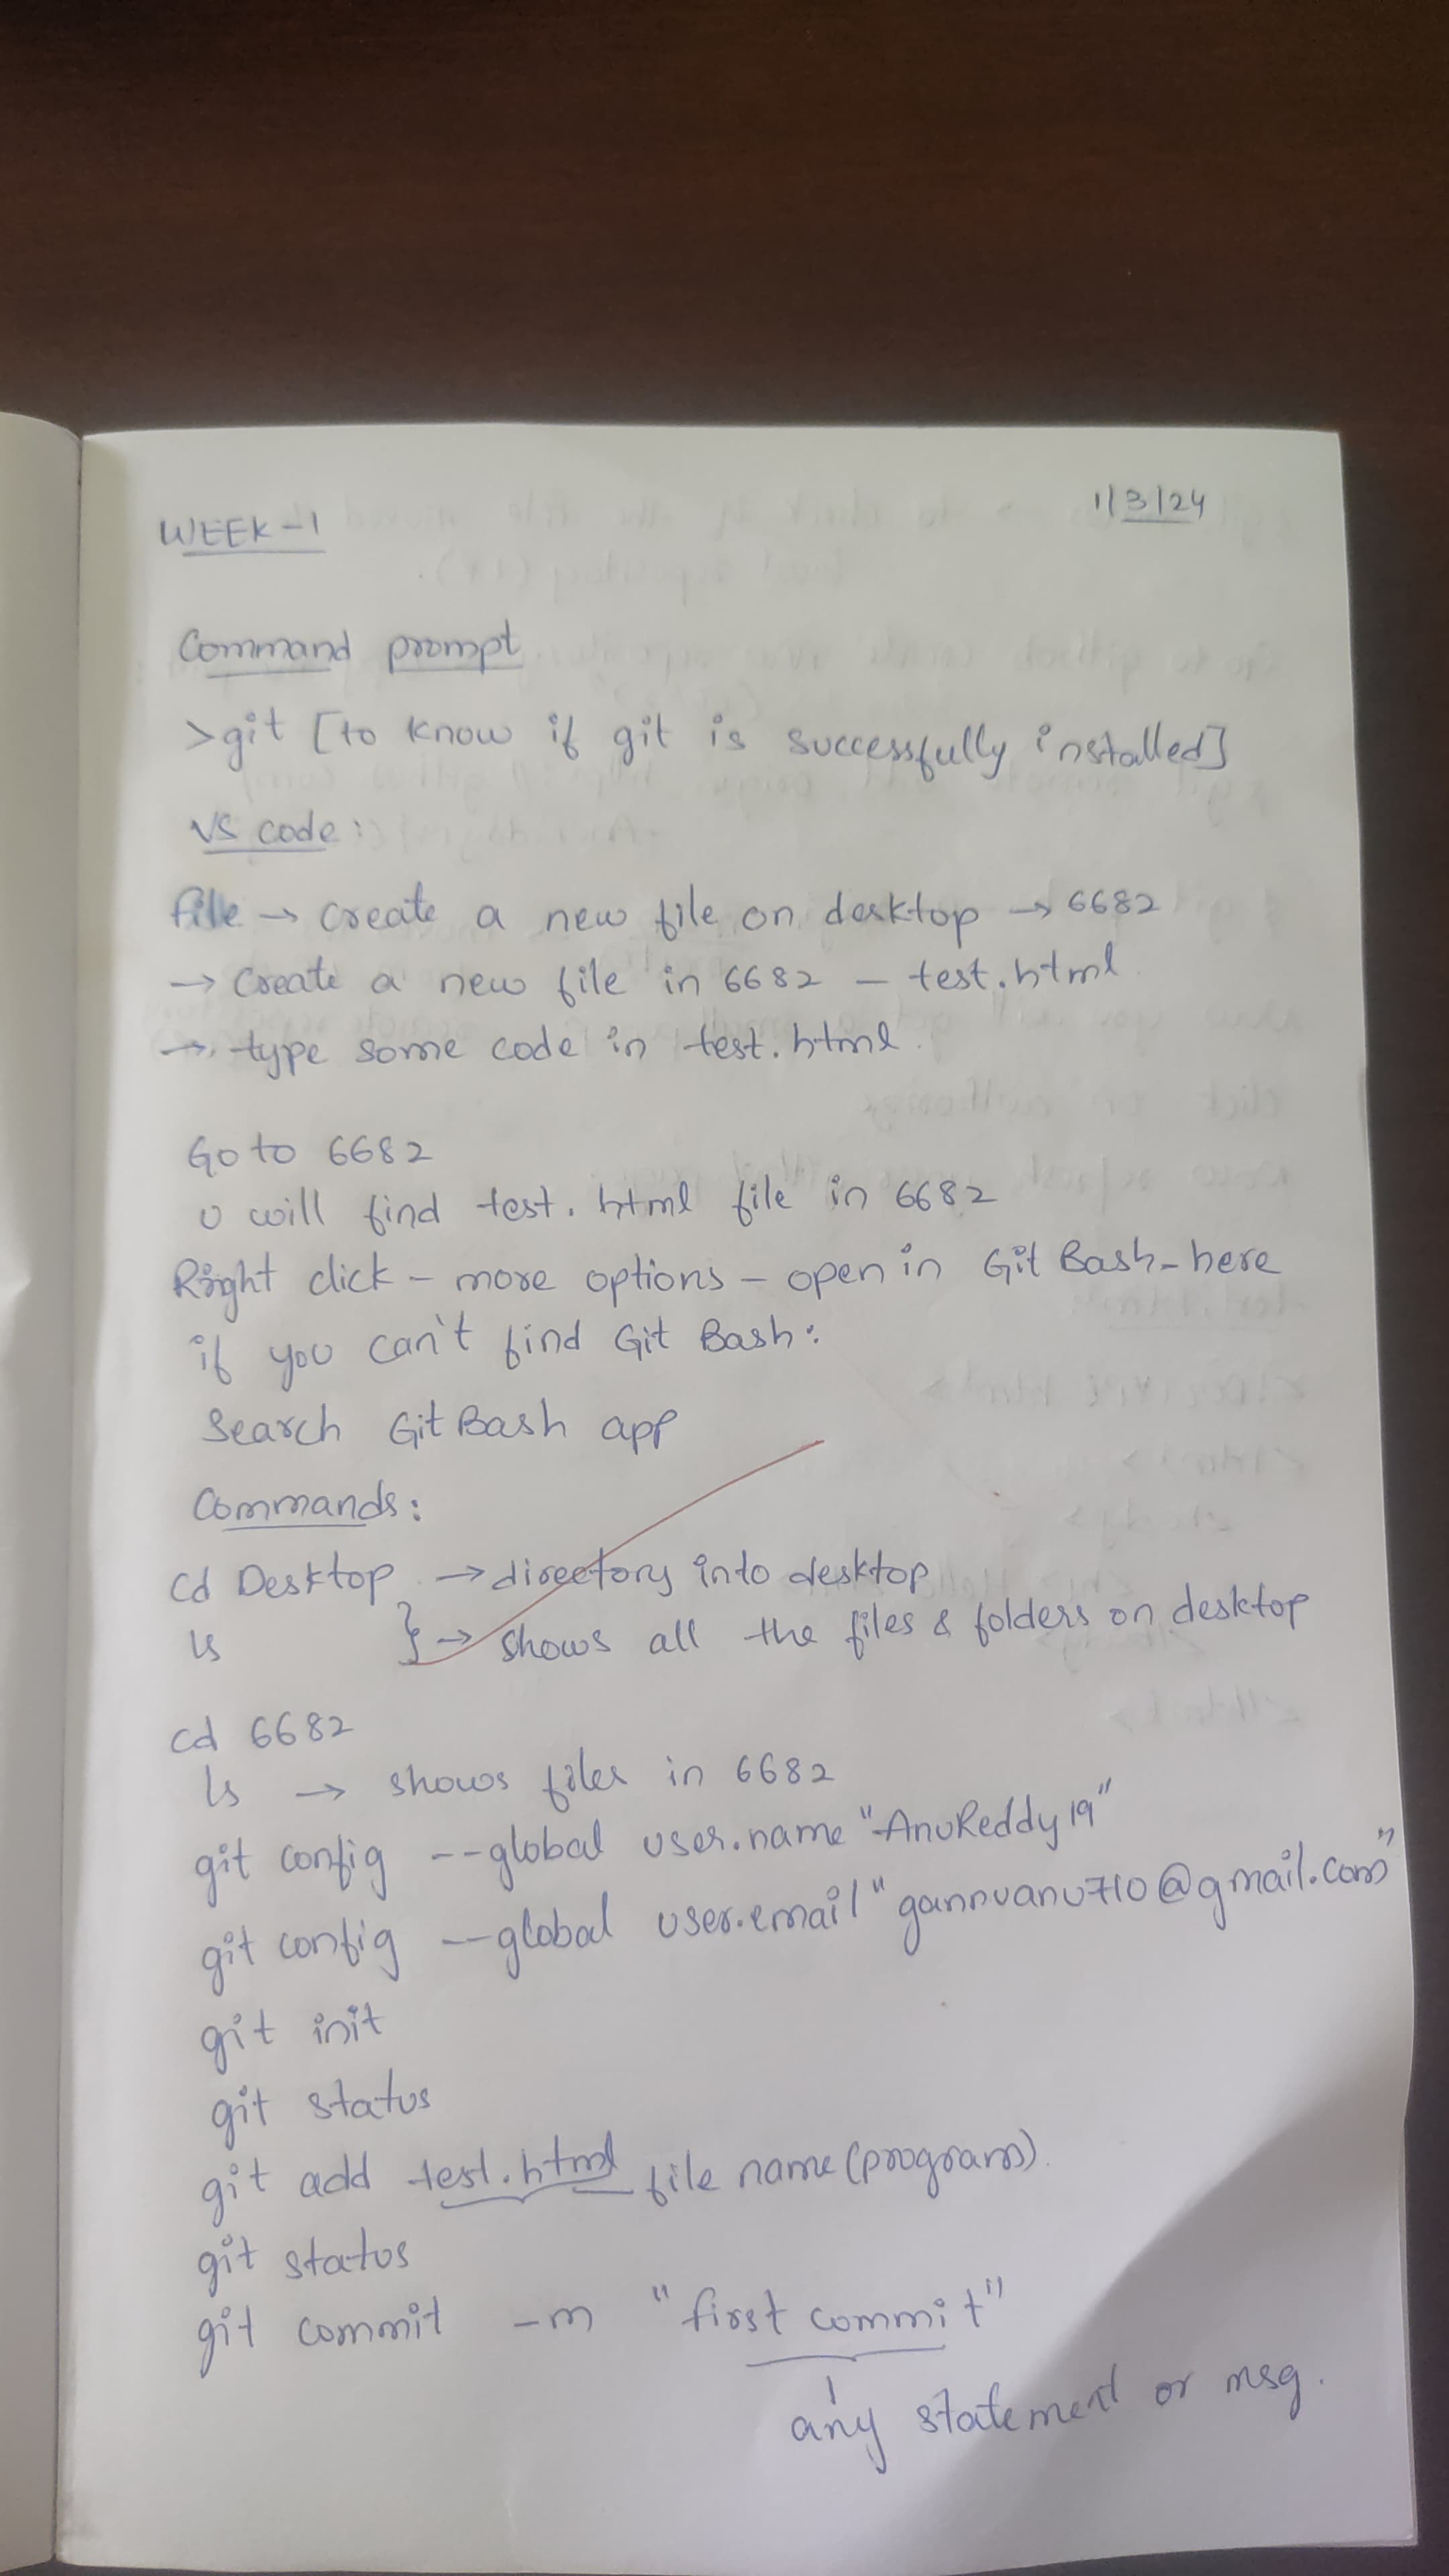 WEEK-1
1/3/24
Command prompt
>git [to know if git is successfully installed]
VS code:
File → create a new file on desktop → 6682
→ Create a new file in 6682 - test.html
→ type some code in test.html.
Go to 6682
u will find test.html file in 6682
Right click - more options - open in Git Bash-here
if you can't find Git Bash:
Search Git Bash app
Commands:
cd Desktop → directory into desktop
ls } → shows all the files & folders on desktop
cd 6682
ls → shows files in 6682
git config --global user.name "AnuReddy19"
git config --global user.email "gannuanu710@gmail.com"
git init
git status
git add test.html file name (program).
git status
git commit -m "first commit"
any statement or msg.